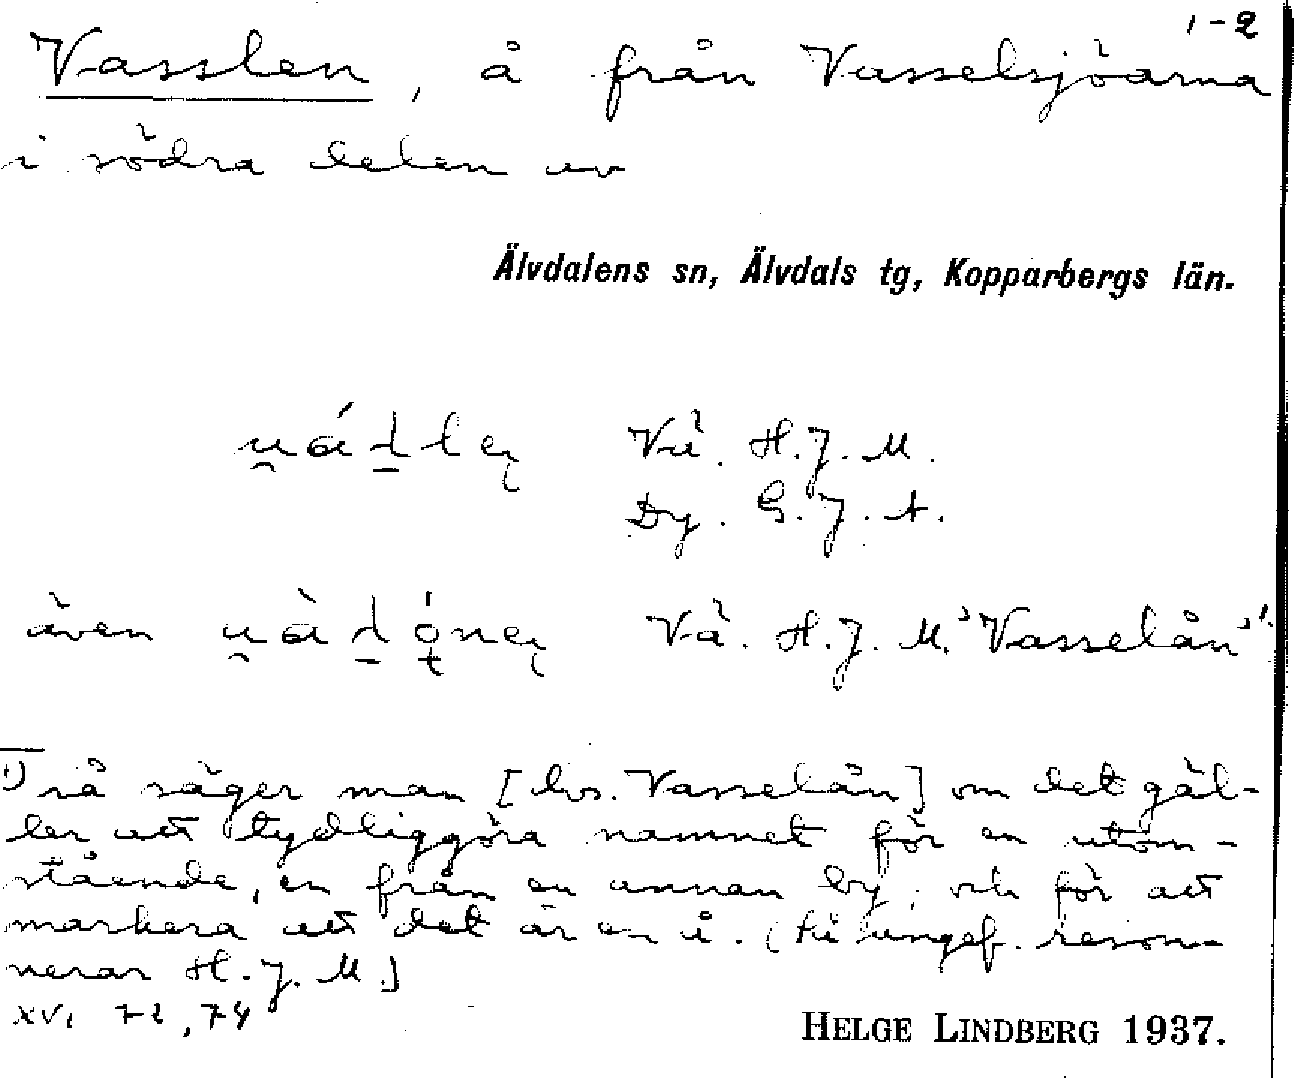 1-2
Vasslen, å från Vasselsjöarna
i södra delen av
Älvdalens sn, Älvdals tg, Kopparbergs län.
Vå. H. J. M.
Dy. G. J. A.
även Vå. H. J. M. "Vasselån" 1.
1) så säger man [dvs. Vasselån] om det gäl-
ler att tydliggöra namnet för en utom-
stående, en från en annan by, och för att
markera att det är en å. (Så ungef. reson-
nerar H. J. M.)
XVI 72, 74
HELGE LINDBERG 1937.